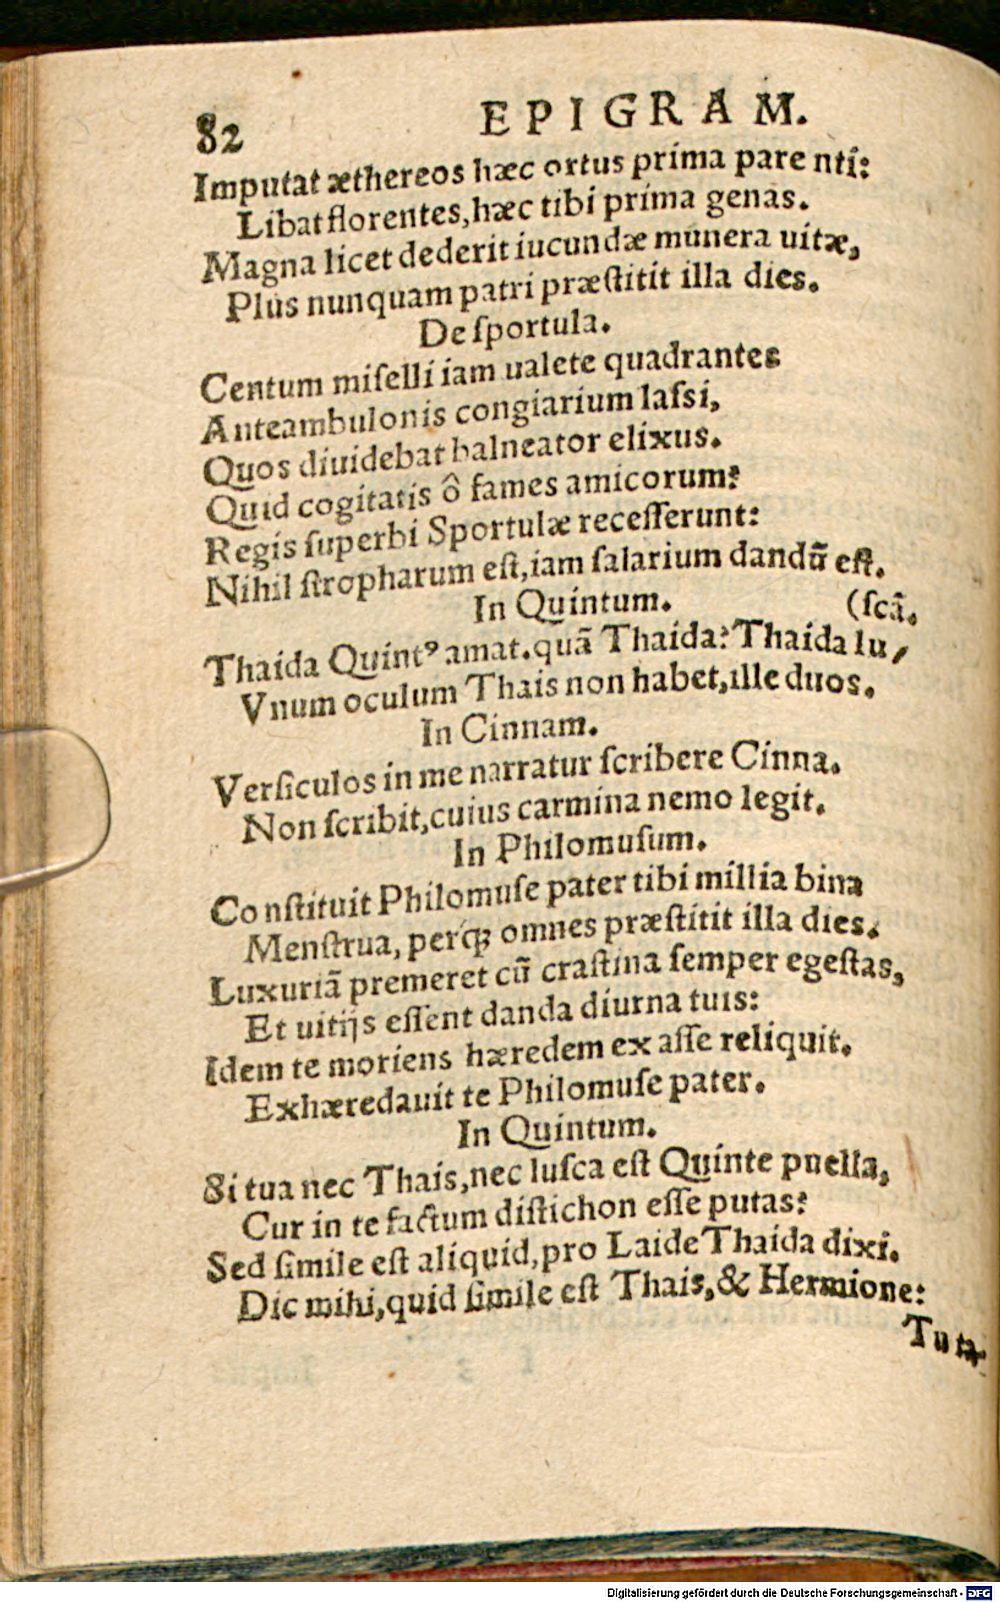 82 EPIGRAM.
Imputat æthereos hæc ortus prima pare nti:
Libat florentes, hæc tibi prima genas.
Magna licet dederit iucundæ munera uitæ,
Plus nunquam patri præſtitit illa dies.
De ſportula.
Centum miſelli iam ualete quadrantes
Anteambulonis congiarium laſsi,
Quos diuidebat balneator elixus.
Quid cogitatis ô fames amicorum?
Regis ſuperbi Sportulæ receſſerunt:
Nihil ſtropharum eſt, iam ſalarium dandũ eſt.
In Quintum. (ſcã.
Thaida Quintꝰ amat. quã Thaida? Thaida lu,
Vnum oculum Thais non habet, ille duos.
In Cinnam.
Verſiculos in me narratur ſcribere Cinna.
Non ſcribit, cuius carmina nemo legit.
In Philomuſum.
Conſtituit Philomuſe pater tibi millia bina
Menſtrua, perq́; omnes præſtitit illa dies.
Luxuriã premeret cũ craſtina ſemper egeſtas,
Et uitijs eſſent danda diurna tuis:
Idem te moriens hæredem ex aſſe reliquit.
Exhæredauit te Philomuſe pater.
In Quintum.
Si tua nec Thais, nec luſca eſt Quinte puella,
Cur in te factum diſtichon eſſe putas?
Sed ſimile eſt aliquid, pro Laide Thaida dixi.
Dic mihi, quid ſimile eſt Thais, & Hermione:
Tu ta-
Digitalisierung gefördert durch die Deutsche Forschungsgemeinschaft - DFG